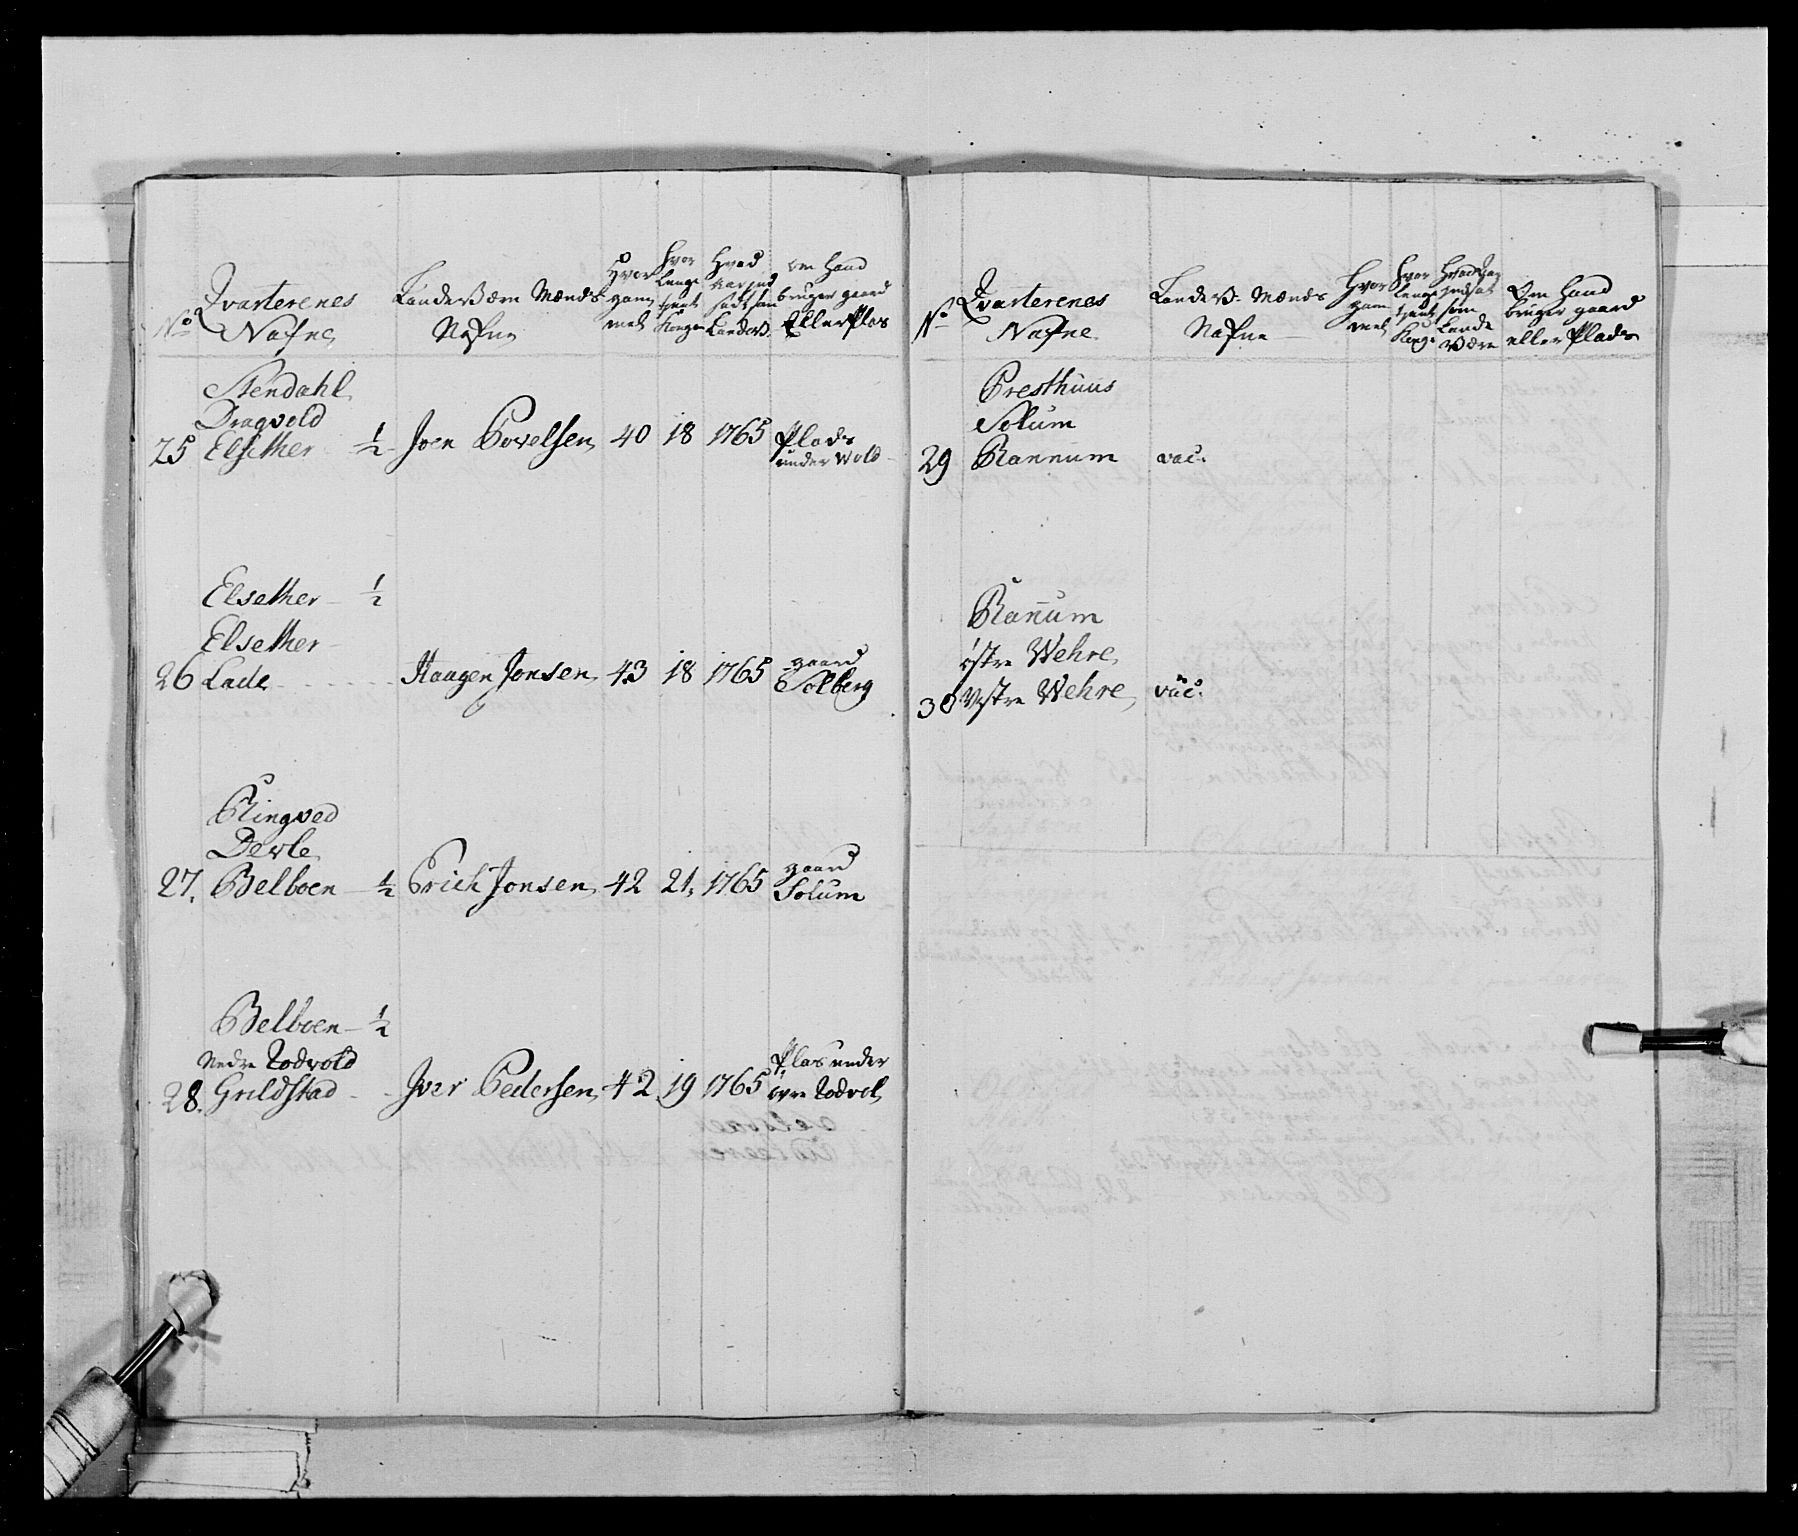 No
Qvarterenes
Nafne
LandeVærn Mænds
Nafne
Hvor
gam
mel
Hvor
lenge
tient
Kongen
Hvad
som
LandeV.
om Hand
bruger gaard
Eller Plas
Stendahl
Dragvold
25 Elsether ½ Joen Povelsen 40 18 1765 Plads
under Wold
Elsether ½
Elsether
26 Lade Haagen Jonsen 43 18 1765 gaard
Solberg
Ringved
Devle
27. Belboen ½ Erich Jonsen 42 21. 1765 gaard
Solum
Belboen ½
Nedre Rodvold
28. Grildstad Iver Pedersen 42 19 1765 Plas under
øvre Rodvol
No
Qvarterenes
Nafne
LandeV. Mænds
Nafne
Hvor
gam
mel
Hvor
lenge
tient
Kong.
som
Lande
Være
Om Hand
bruger gaard
eller Plads
Presthuus
Solum
29 Rannum vac.
Ranum
østre Wehre
30 Vestre Wehre vac.